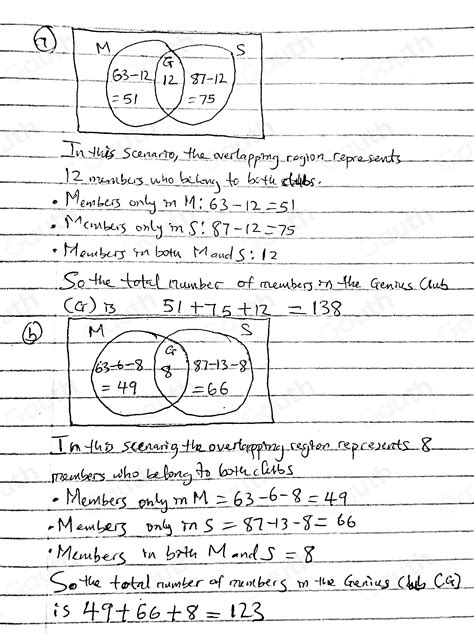 a
M S
G
63-12 12 87-12
=51 =75
In this scenario, the overlapping region represents
12 members who belong to both clubs.
• Members only in M: 63-12=51
• Members only in S: 87-12=75
• Members in both M and S: 12
So the total number of members in the Genius Club
(G) is 51+75+12 =138
b
M S
G
63-6-8 8 87-13-8
= 49 =66
In this scenario the overlapping region represents 8
members who belong to both clubs
• Members only in M = 63-6-8 = 49
• Members only in S = 87-13-8= 66
• Members in both M and S = 8
So the total number of members in the Genius Club (G)
is 49+66+8 = 123